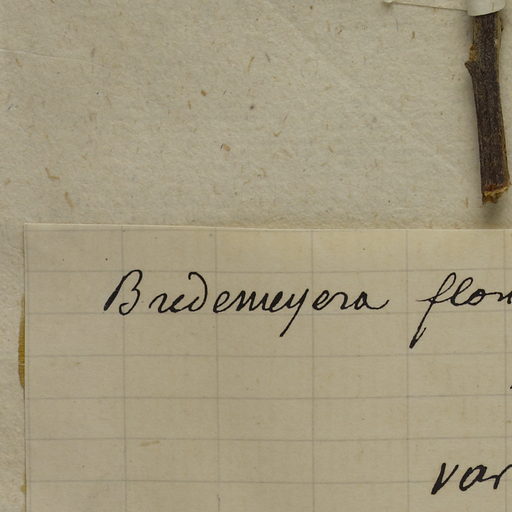 Bredemeyera flor
var